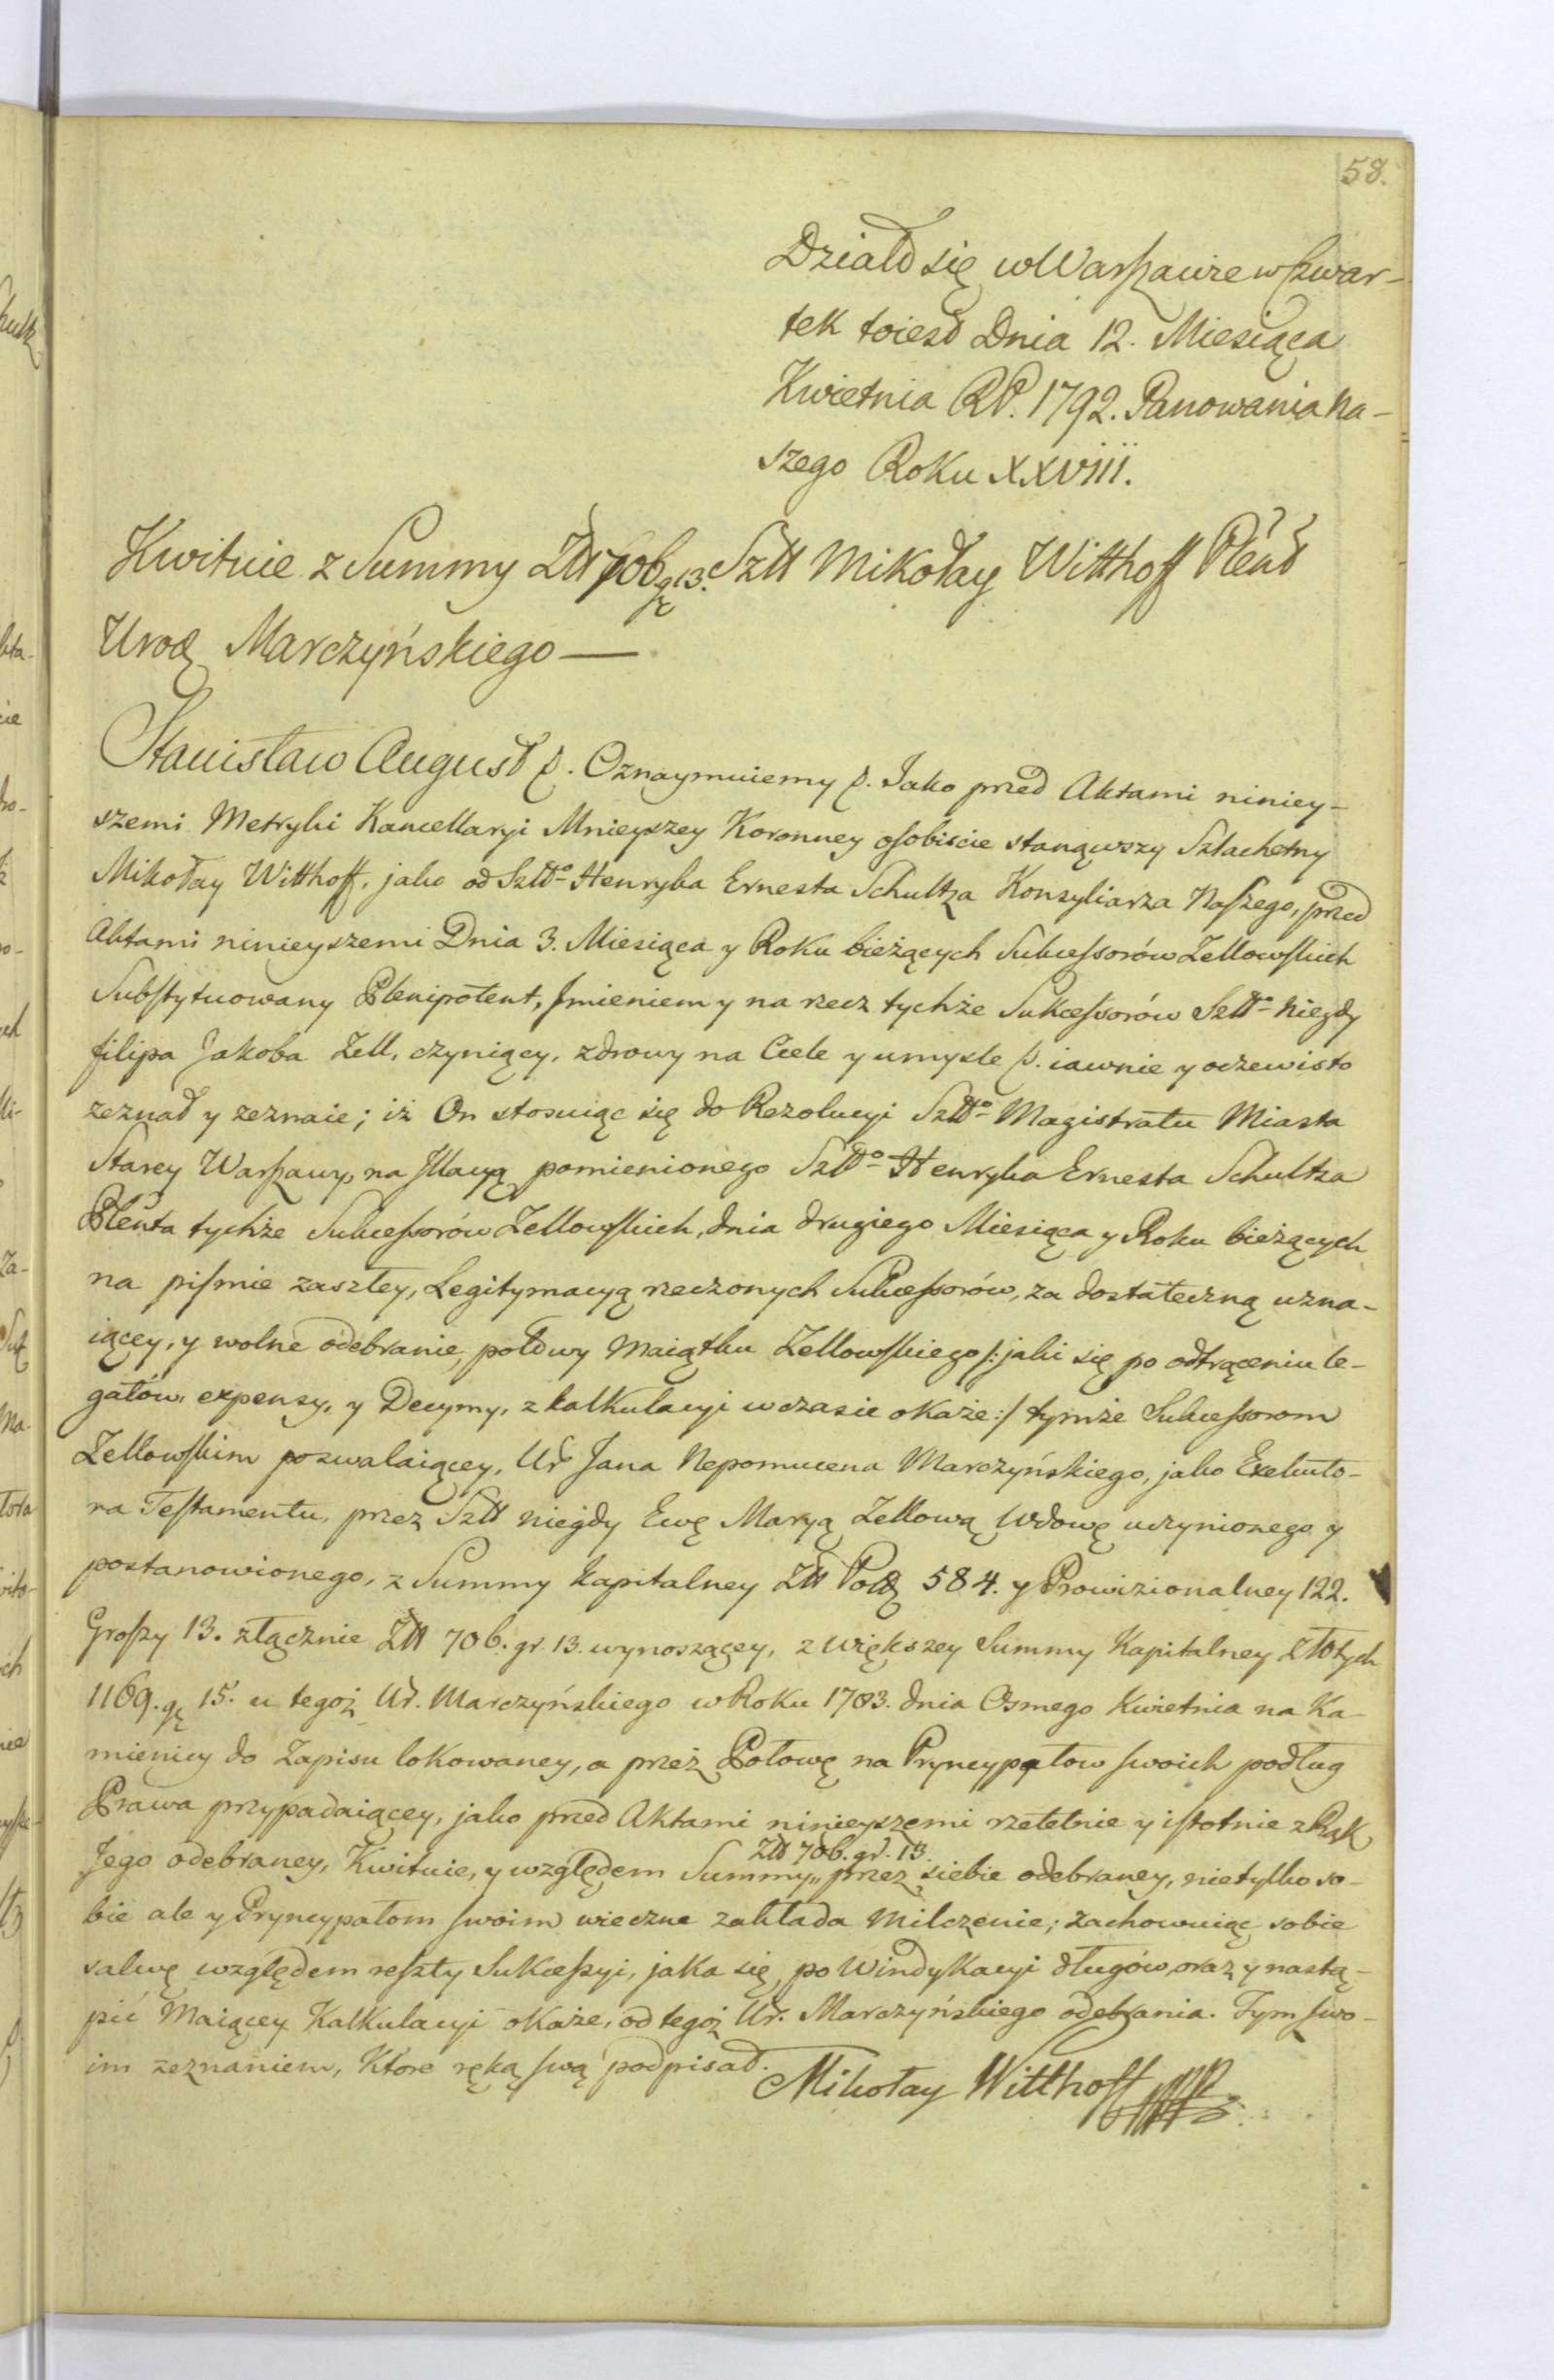 58.
Działo się w Warszawie w Czwar-
tek toiest Dnia 12. Miesiąca
Kwietnia RP. 1792. Panowania Na-
szego Roku XXVIII.
Kwituie z Summy Złł 706 gr 13. Szll Mikołay Witthoff Plent
Urod Marczyńskiego —
Stanisław August p. Oznaymuiemy p. Iako przed Aktami niniey-
szemi Metryki Kancellaryi Mnieyszey Koronney osobiscie stanąwszy Szlachetny
Mikołay Witthoff, jako od Szlto Henryka Ernesta Schultza Konsyliarza Naszego, przed
Aktami ninieyszemi Dnia 3. Miesiąca y Roku bieżących Sukcessorów Zellowskich
Substytuowany Plenipotent, Jmieniem y na rzecz tychże Sukcessorów Szlto niegdy
filipa Jakoba Zell, czyniący, zdrowy na Ciele y umysle p. iawnie y oczewisto
zeznał y zeznaie; iż On stosuiąc się do Rezolucyi Szlto Magistratu Miasta
Starey Warszawy, na Jllacyą pomienionego Szlto Henryka Ernesta Schultza
Plenta tychże Sukcessorów Zellowskich, dnia drugiego Miesiąca y Roku bieżących
na piśmie zaszłey, Legitymacyą rzeczonych Sukcessorów, za dostateczną uzna-
iącey, y wolne odebranie, połowy Maiątku Zellowskiego /: jaki się po odtrąceniu le-
gatów, expensy, y Decymy, z kalkulacyi w czasie okaże :/ tymże Sukcessorom
Zellowskim pozwalaiącey, Ur Jana Nepomucena Marczyńskiego, jako Exekuto-
ra Testamentu, przez Szll niegdy Ewę Maryą Zellową Wdowę uczynionego y
postanowionego, z Summy kapitalney Złł Pol 584. y Prowizionalney 122.
Groszy 13. złącznie Złł 706. gr. 13. wynoszącey, z większey Summy Kapitalney Złotych
1169. gr 15. u tegoż Ur. Marczyńskiego w Roku 1783. dnia Osmego Kwietnia na Ka-
mienicy do Zapisu lokowaney, a przez Połowę na Pryncypałow swoich podług
Prawa przypadaiącey, jako przed Aktami ninieyszemi rzetelnie y istotnie z Rąk
Jego odebraney, Kwituie, y względem Summy „ Złł 706. gr. 13. przez siebie odebraney, nietylko so-
bie ale y Pryncypałom swoim wieczne zakłada Milczenie; zachowuiąc sobie
salwę względem reszty Sukcessyi, jaka się po Windykacyi długów, oraz y nastą-
pić Maiącey Kalkulacyi okaże, od tegoż Ur. Marczyńskiego odebrania. Tym swo-
im zeznaniem, Które ręką swą podpisał.
Mikołay Witthoff